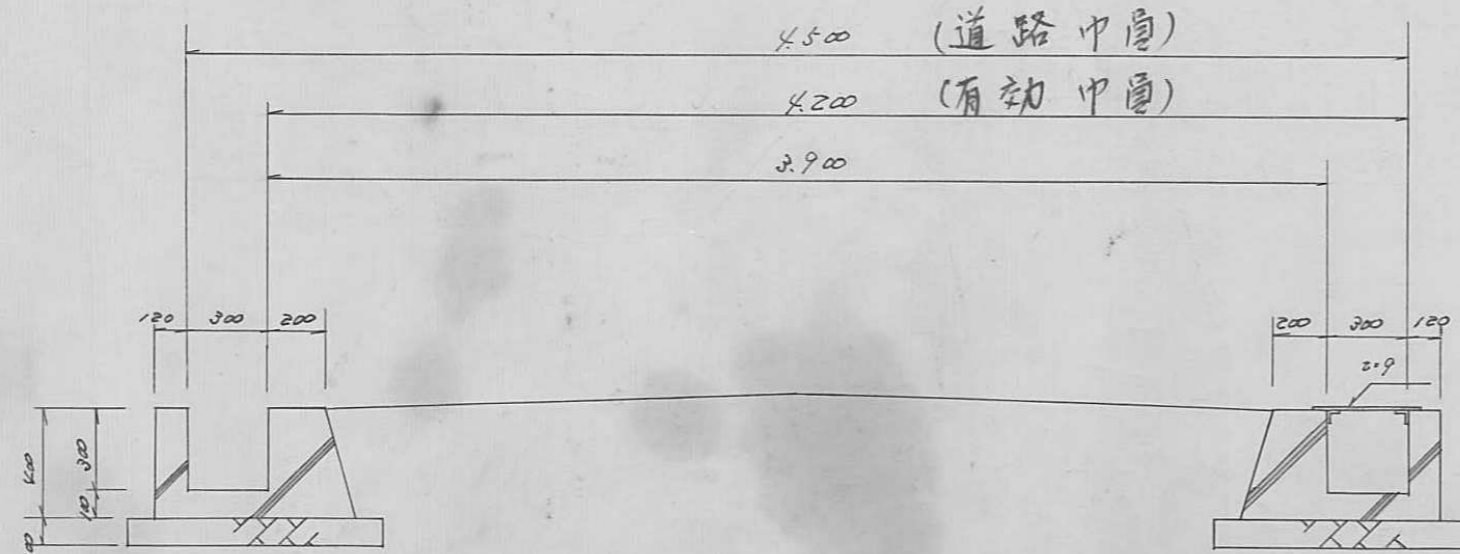 4.500 (道路巾員)
4.200 (有効巾員)
3.900
120 300 200
200 300 120
400
300
100